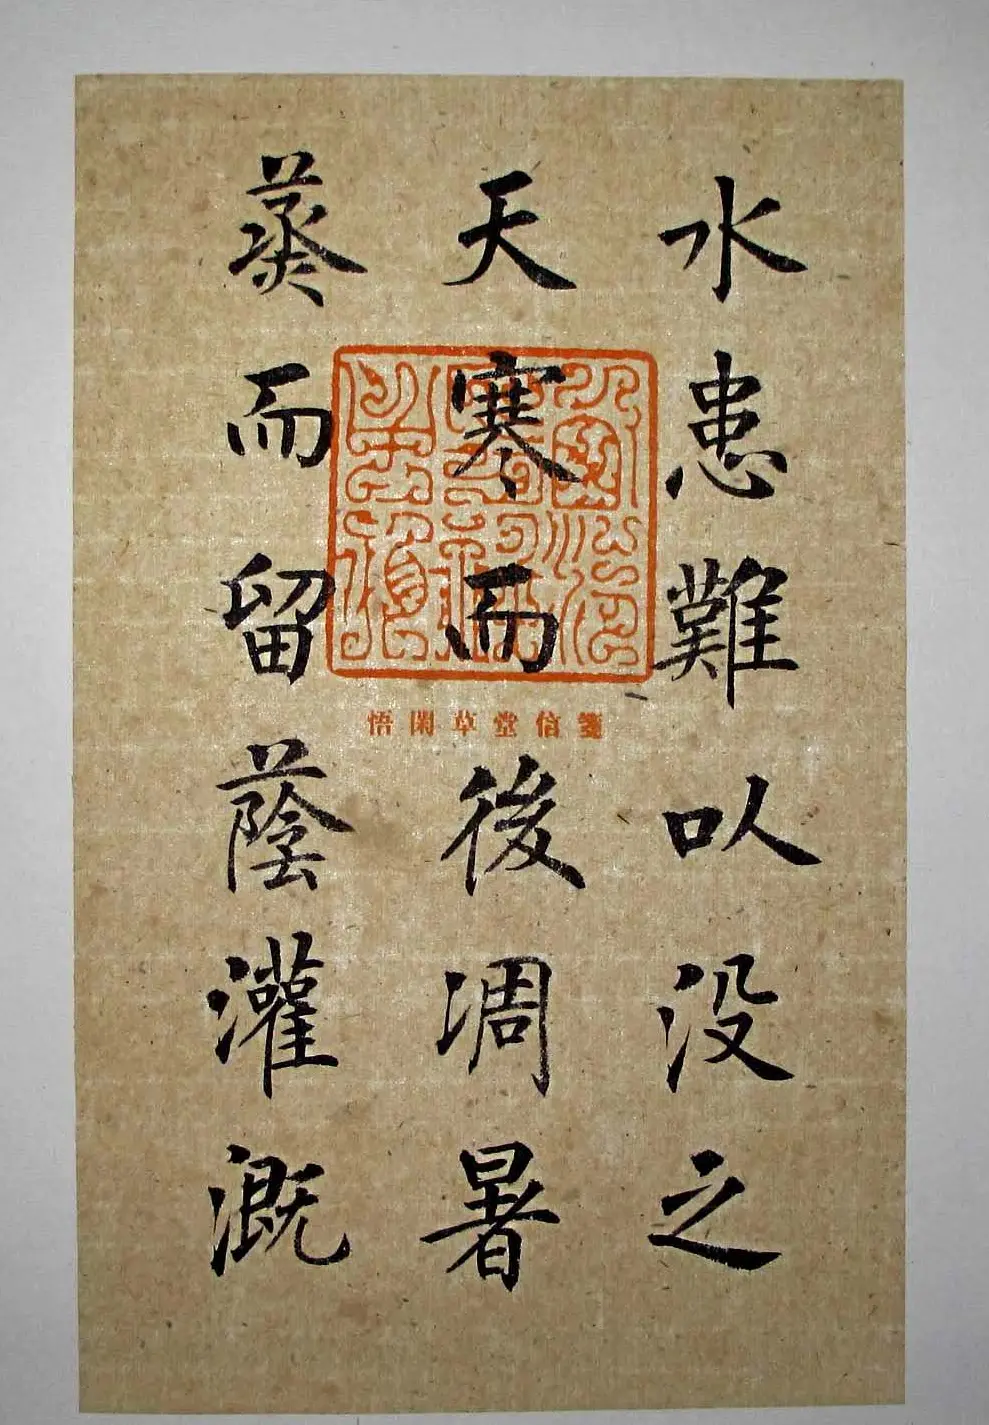 水患難以没之
天寒而後凋暑
蒸而留蔭灌溉
悟閑草堂信箋